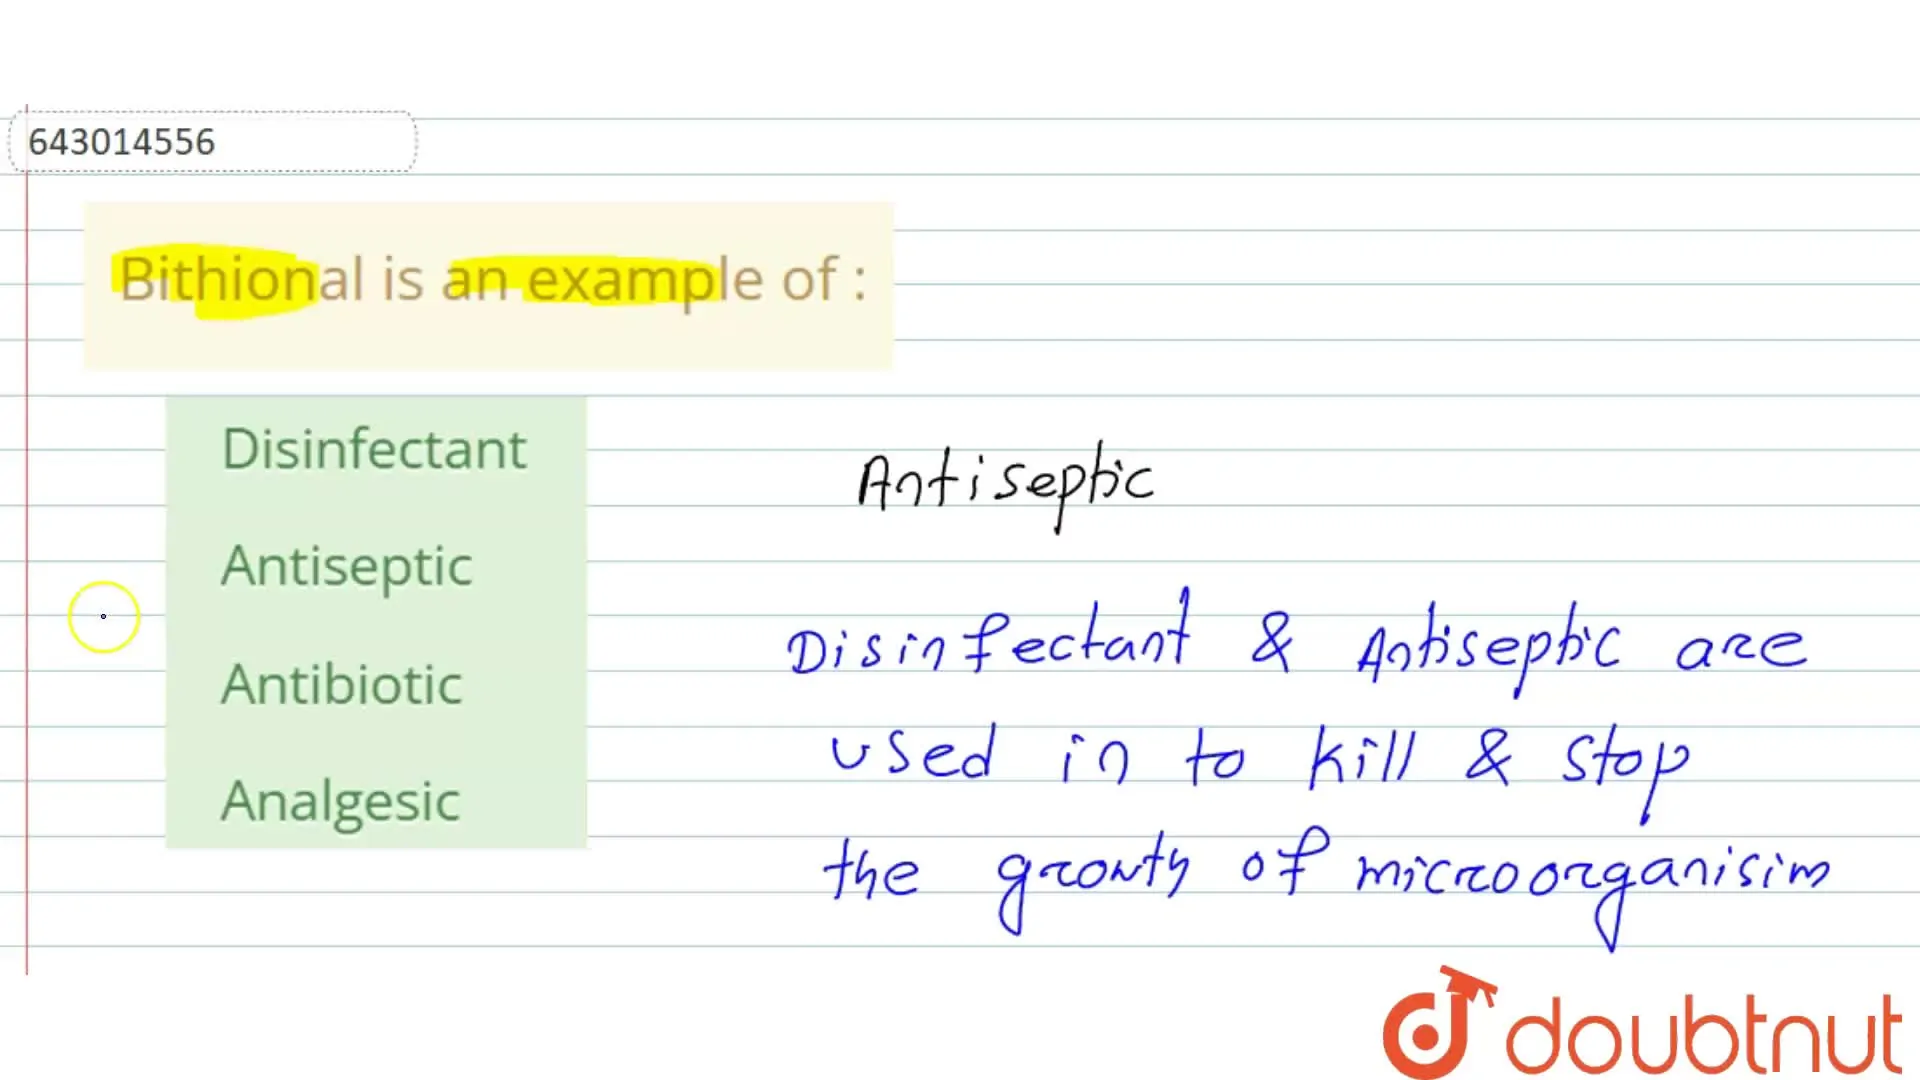 643014556
Bithional is an example of :
Disinfectant
Antiseptic
Antibiotic
Analgesic
Antiseptic
Disinfectant & Antiseptic are
used in to kill & stop
the growth of microorganisim
doubtnut